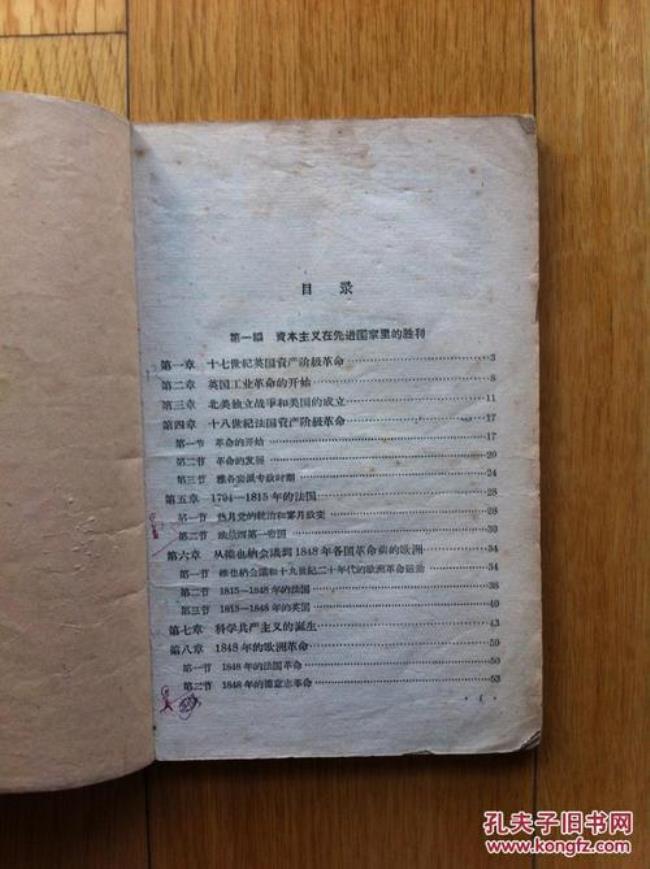 目录
第一編 資本主义在先进国家里的胜利
第一章 十七世紀英国資产阶級革命……3
第二章 英国工业革命的开始……8
第三章 北美独立战爭和美国的成立……11
第四章 十八世紀法国資产阶級革命……17
第一节 革命的开始……17
第二节 革命的发展……20
第三节 雅各宾派专政时期……24
第五章 1794—1815年的法国……28
第一节 热月党的統治和雾月政变……28
第二节 法兰西第一帝国……30
第六章 从維也納会議到1848年各国革命前的欧洲……34
第一节 維也納会議和十九世紀二十年代的欧洲革命运动……34
第二节 1815—1848年的法国……38
第三节 1815—1848年的英国……40
第七章 科学共产主义的誕生……43
第八章 1848年的欧洲革命……50
第一节 1848年的法国革命……50
第二节 1848年的德意志革命……53
· 1 ·
孔夫子旧书网
www.kongfz.com